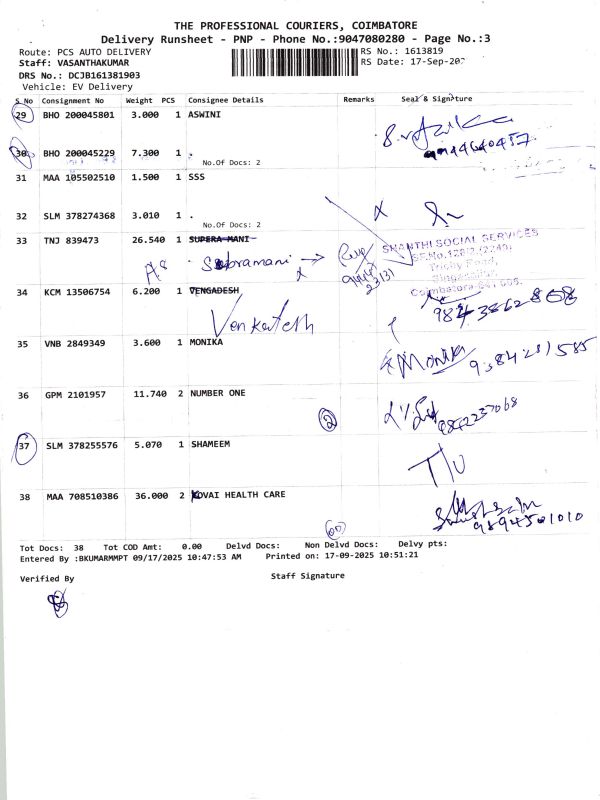 THE PROFESSIONAL COURIERS, COIMBATORE
Delivery Runsheet - PNP - Phone No.:9047080280 - Page No.:3
Route: PCS AUTO DELIVERY
RS No.: 1613819
Staff: VASANTHAKUMAR
RS Date: 17-Sep-202
DRS No.: DCJB161381903
Vehicle: EV Delivery
S.No Consignment No Weight PCS Consignee Details Remarks Seal & Signature
29 BHO 200045801 3.000 1 ASWINI
30 BHO 200045229 7.300 1 .
No.Of Docs: 2
31 MAA 105502510 1.500 1 SSS
32 SLM 378274368 3.010 1 .
No.Of Docs: 2
33 TNJ 839473 26.540 1 SUPERA MANI
Subramani
SHANTHI SOCIAL SERVICES
Trichy Road,
Singanallur,
Coimbatore-641 005.
34 KCM 13506754 6.200 1 VENGADESH
Venkatesh
35 VNB 2849349 3.600 1 MONIKA
Monika
36 GPM 2101957 11.740 2 NUMBER ONE
2
9842237068
37 SLM 378255576 5.070 1 SHAMEEM
T/U
38 MAA 708510386 36.000 2 KOVAI HEALTH CARE
9894501010
60
Tot Docs: 38 Tot COD Amt: 0.00 Delvd Docs: Non Delvd Docs: Delvy pts:
Entered By :BKUMARMMPT 09/17/2025 10:47:53 AM Printed on: 17-09-2025 10:51:21
Verified By Staff Signature